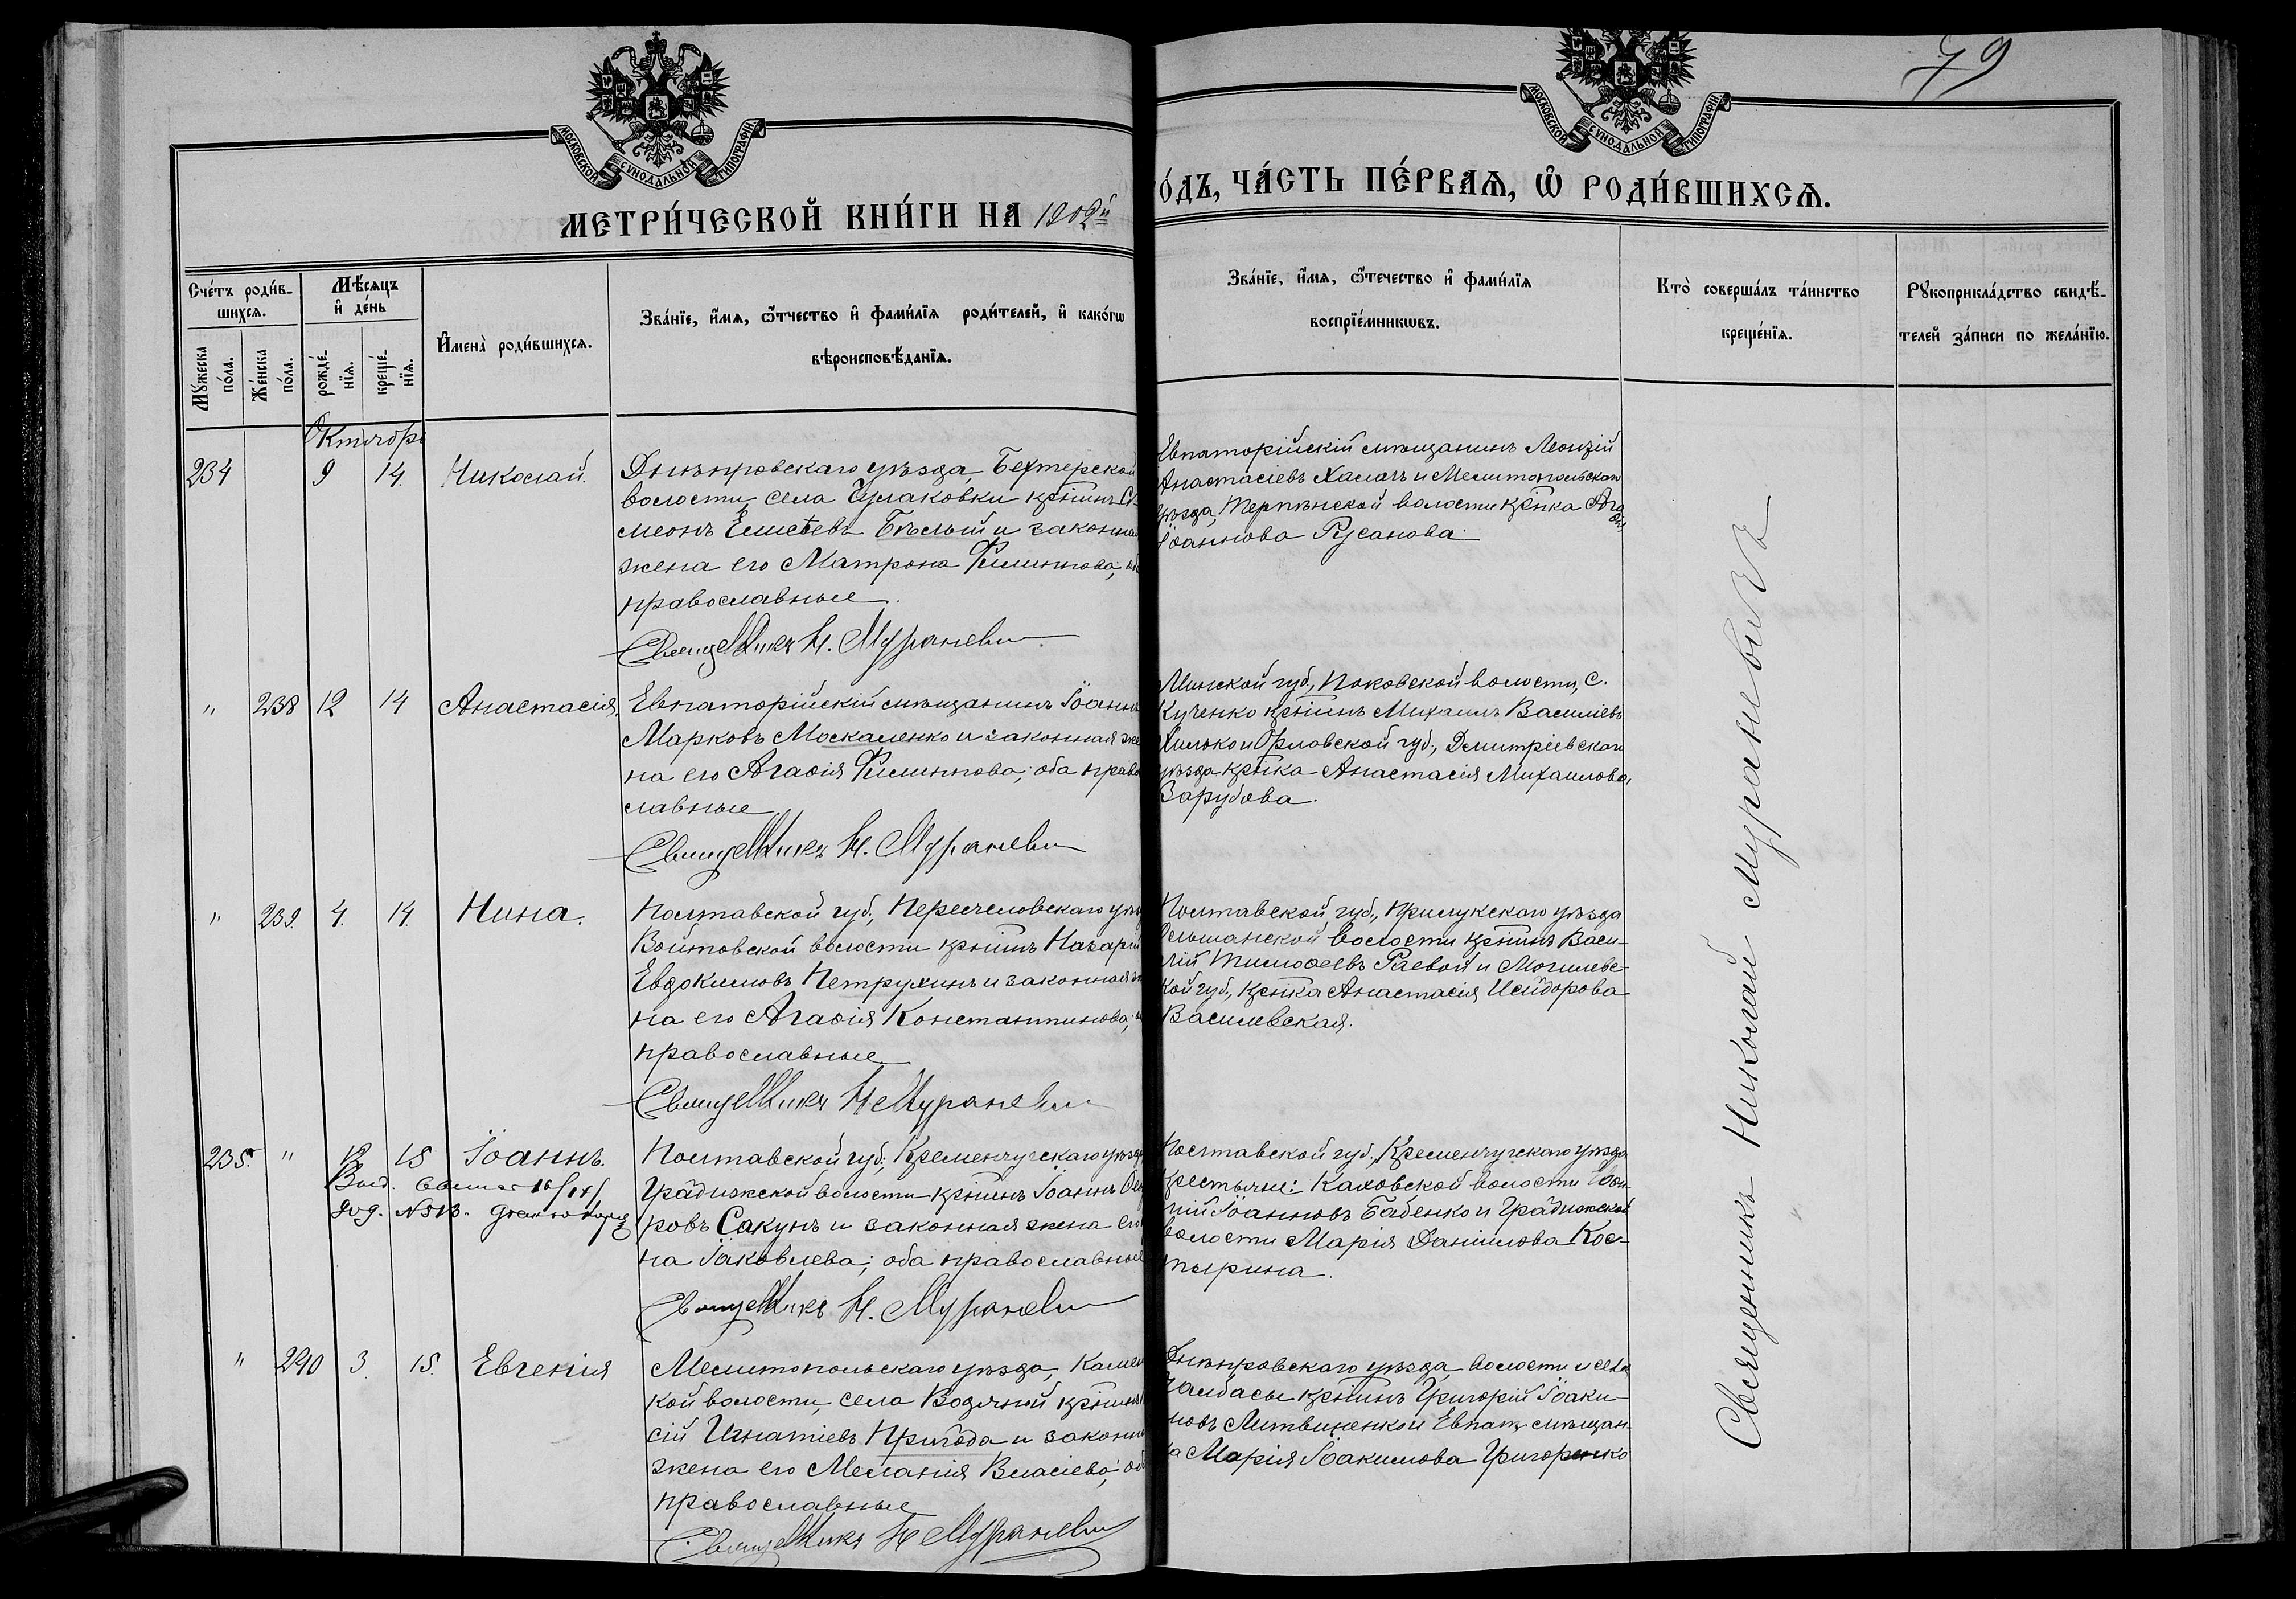 79
МОСКОВСКОЙ СѴНОДАЛЬНОЙ ТИПОГРАФІИ
МОСКОВСКОЙ СѴНОДАЛЬНОЙ ТИПОГРАФІИ
МЕТРИ́ЧЕСКОЙ КНИ́ГИ НА 1902й
О́ДЪ, ЧА́СТЬ ПЕ́РВАѦ, Ѿ РОДИ́ВШИХСѦ.
Сче́тъ роди́в-
шихсѧ.
Мꙋ́жеска по́ла.
Же́нска по́ла.
Мѣ́сѧцъ и҆ де́нь
рожде́-нїѧ.
креще́-нїѧ.
И҆мена̀ роди́вшихсѧ.
Зва́нїе, и҆́мѧ, ѻ҆́тчество и҆ фами́лїѧ роди́телей, и҆ како́гѡ
вѣроисповѣ́данїѧ.
Зва́нїе, и҆́мѧ, ѻ҆те́чество и҆ фами́лїѧ
воспрїе́мникѡвъ.
Кто̀ соверша́лъ та́инство
креще́нїѧ.
Рꙋкоприкла́дство свидѣ́-
телей за́писи по жела́нїю.
Октября
234 9 14. Николай.
Днѣпровскаго уѣзда, Бехтерской
волости, села Чулаковки кр-нинъ Си
меонъ Елисѣевъ Бѣлый и законная
жена его Матрона Филиппова; оба
православные.
Священникъ Н. Мураневи
Евпаторійскій мѣщанинъ Леонтій
Анастасіевъ Халачъ и Мелитопольскаго
уѣзда, Терпѣнской волости кр-нка Ага
Іоаннова Русанова.
" 238 12 14 Анастасія.
Евпаторійскій мѣщанинъ Іоаннъ
Марковъ Москаленко и законная же
на его Агаѳія Филиппова; оба право
славные
Священникъ Н. Мураневи
Минской губ., волости, с.
Кученко кр-нинъ Михаилъ Василіевъ
и Орловской губ., Дмитріевскаго
уѣзда кр-нка Анастасія Михаилова
Зарубова.
" 239. 4. 14. Нина.
Полтавской губ., уѣз
Войтовской волости кр-нинъ Назарій
Евдокимовъ Петрухинъ и законная же
на его Агаѳія Константинова;
православные
Священникъ Н. Мураневи
Полтавской губ., Прилукскаго уѣзда
волости кр-нинъ Васи-
лій Тимоѳеевъ Раевой и Могилевс-
кой губ., кр-нка Анастасія Исидорова
Василевская.
235. " 12 15 Іоаннъ.
16/IX
№ 513.
Полтавской губ., Кременчугскаго уѣзда
Градижской волости кр-нинъ Іоаннъ
ровъ Сакунъ и законная жена его
на Іаковлева; оба православные
Священникъ Н. Мураневи
Полтавской губ., Кременчугскаго уѣзда
крестьяне: волости
Іоанновъ Бабенко и Градижской
волости Марія Даніилова Кос-
тырина.
" 240 3. 15. Евгенія
Мелитопольскаго уѣзда, Камен
кой волости, села Водяной кр-нинъ
сій Игнатіевъ Пригода и законная
жена его Меланія Власіева; об
православные
Священникъ Н Мураневи
Днѣпровскаго уѣзда, волости и села
Чалбасы кр-нинъ Григорій Іоаки-
мовъ Литвиненко и Евпат. мѣщан-
ка Марія Іоакимова Григоренко
Священникъ Николай Мураневичъ